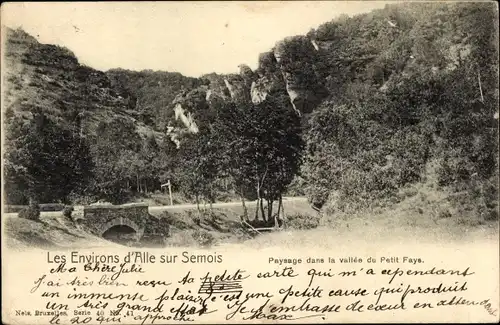 Les Environs d'Alle sur Semois
Paysage dans la vallée du Petit Fays.
Ma Chère Julie
ta petite carte qui m'a cependant
fait très bien reçu
un immense plaisir, c'est une petite cause qui produit
un très grand effet
Je t'embrasse de cœur en attendant
le 20 qui approche
Max
Nels, Bruxelles, Serie 40 No. 41